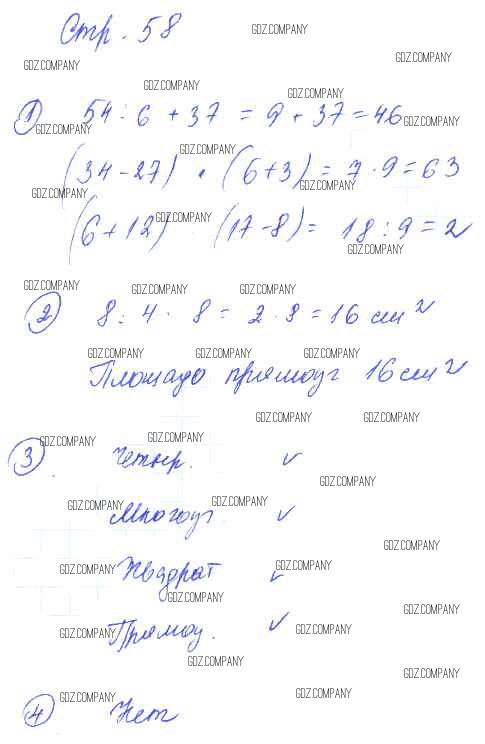 Стр. 58
GDZ.COMPANY
GDZ.COMPANY GDZ.COMPANY
GDZ.COMPANY GDZ.COMPANY
1 54 : 6 + 37 = 9 + 37 = 46
GDZ.COMPANY GDZ.COMPANY
GDZ.COMPANY
(34 - 27) · (6 + 3) = 7 · 9 = 63
GDZ.COMPANY GDZ.COMPANY
GDZ.COMPANY
(6 + 12) : (17 - 8) = 18 : 9 = 2
GDZ.COMPANY
GDZ.COMPANY GDZ.COMPANY GDZ.COMPANY
2 8 : 4 · 8 = 2 · 8 = 16 см²
GDZ.COMPANY GDZ.COMPANY GDZ.COMPANY
Площадь прямоуг 16 см²
GDZ.COMPANY GDZ.COMPANY
GDZ.COMPANY GDZ.COMPANY
3 Четыр. ✓
GDZ.COMPANY
GDZ.COMPANY GDZ.COMPANY
Многоуг. ✓
GDZ.COMPANY
GDZ.COMPANY GDZ.COMPANY
Квадрат ✓
GDZ.COMPANY GDZ.COMPANY
Прямоу. ✓
GDZ.COMPANY GDZ.COMPANY
GDZ.COMPANY GDZ.COMPANY
GDZ.COMPANY GDZ.COMPANY
4 Нет